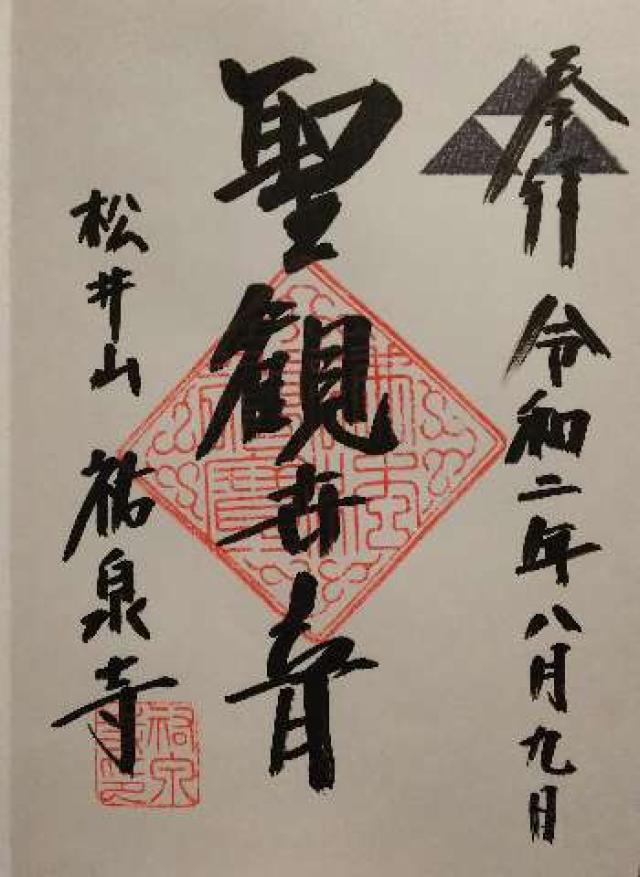 奉拝 令和二年八月九日
聖観世音
松井山 祐泉寺